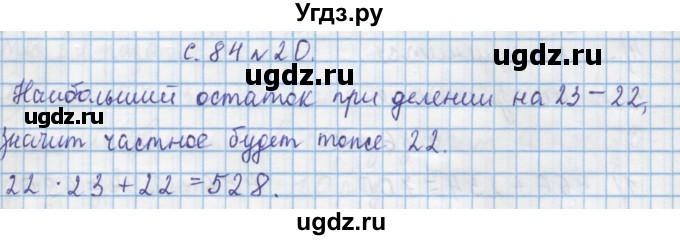 Угдз.ру
с. 84 №20.
ugdz.ru ugdz.ru
Наибольший остаток при делении на 23 – 22,
ugdz.ru
значит частное будет тоже 22.
ugdz.ru
22 · 23 + 22 = 528.
ugdz.ru ugdz.ru